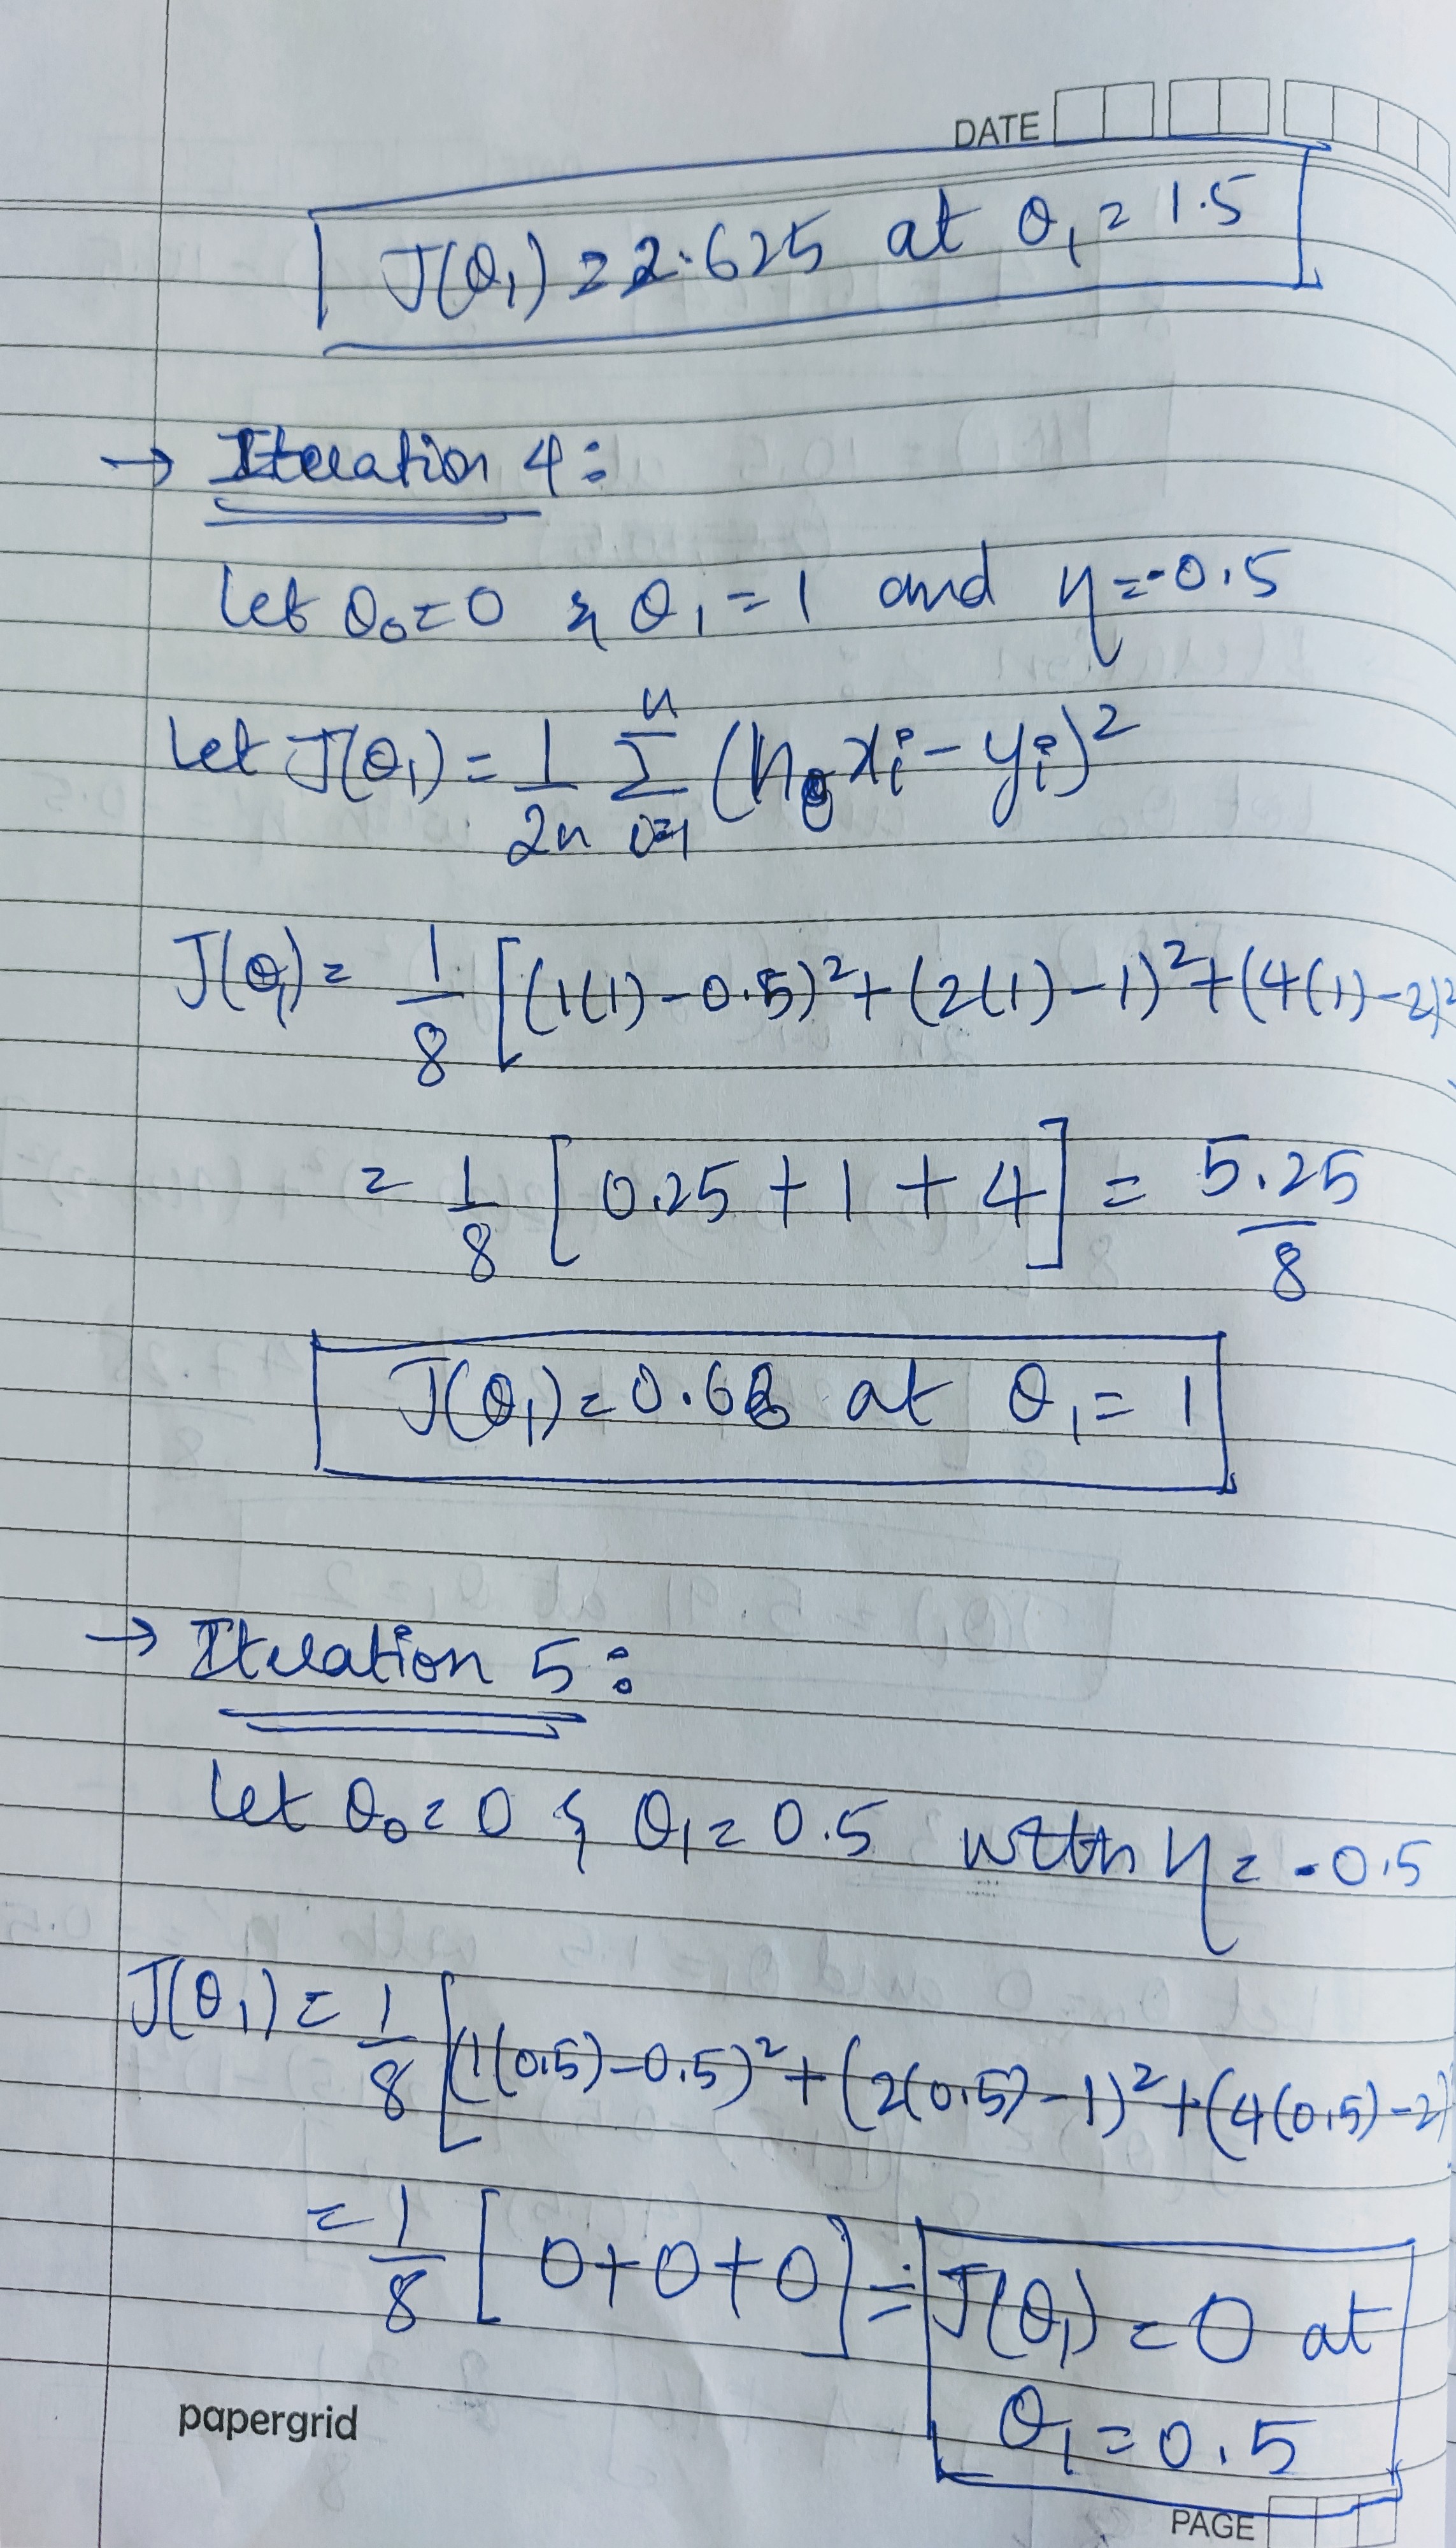 DATE
J(θ₁) = 2.625 at θ₁ = 1.5
→ Iteration 4:
Let θ₀ = 0 & θ₁ = 1 and η = -0.5
Let J(θ₁) = 1/2n Σ i=1 n (hθ xi - yi)²
J(θ₁) = 1/8 [(1(1) - 0.5)² + (2(1) - 1)² + (4(1) - 2)²
= 1/8 [0.25 + 1 + 4] = 5.25/8
J(θ₁) = 0.6 at θ₁ = 1
→ Iteration 5:
Let θ₀ = 0 & θ₁ = 0.5 with η = -0.5
J(θ₁) = 1/8 [(1(0.5) - 0.5)² + (2(0.5) - 1)² + (4(0.5) - 2)
= 1/8 [0 + 0 + 0] = J(θ₁) = 0 at
θ₁ = 0.5
papergrid
PAGE